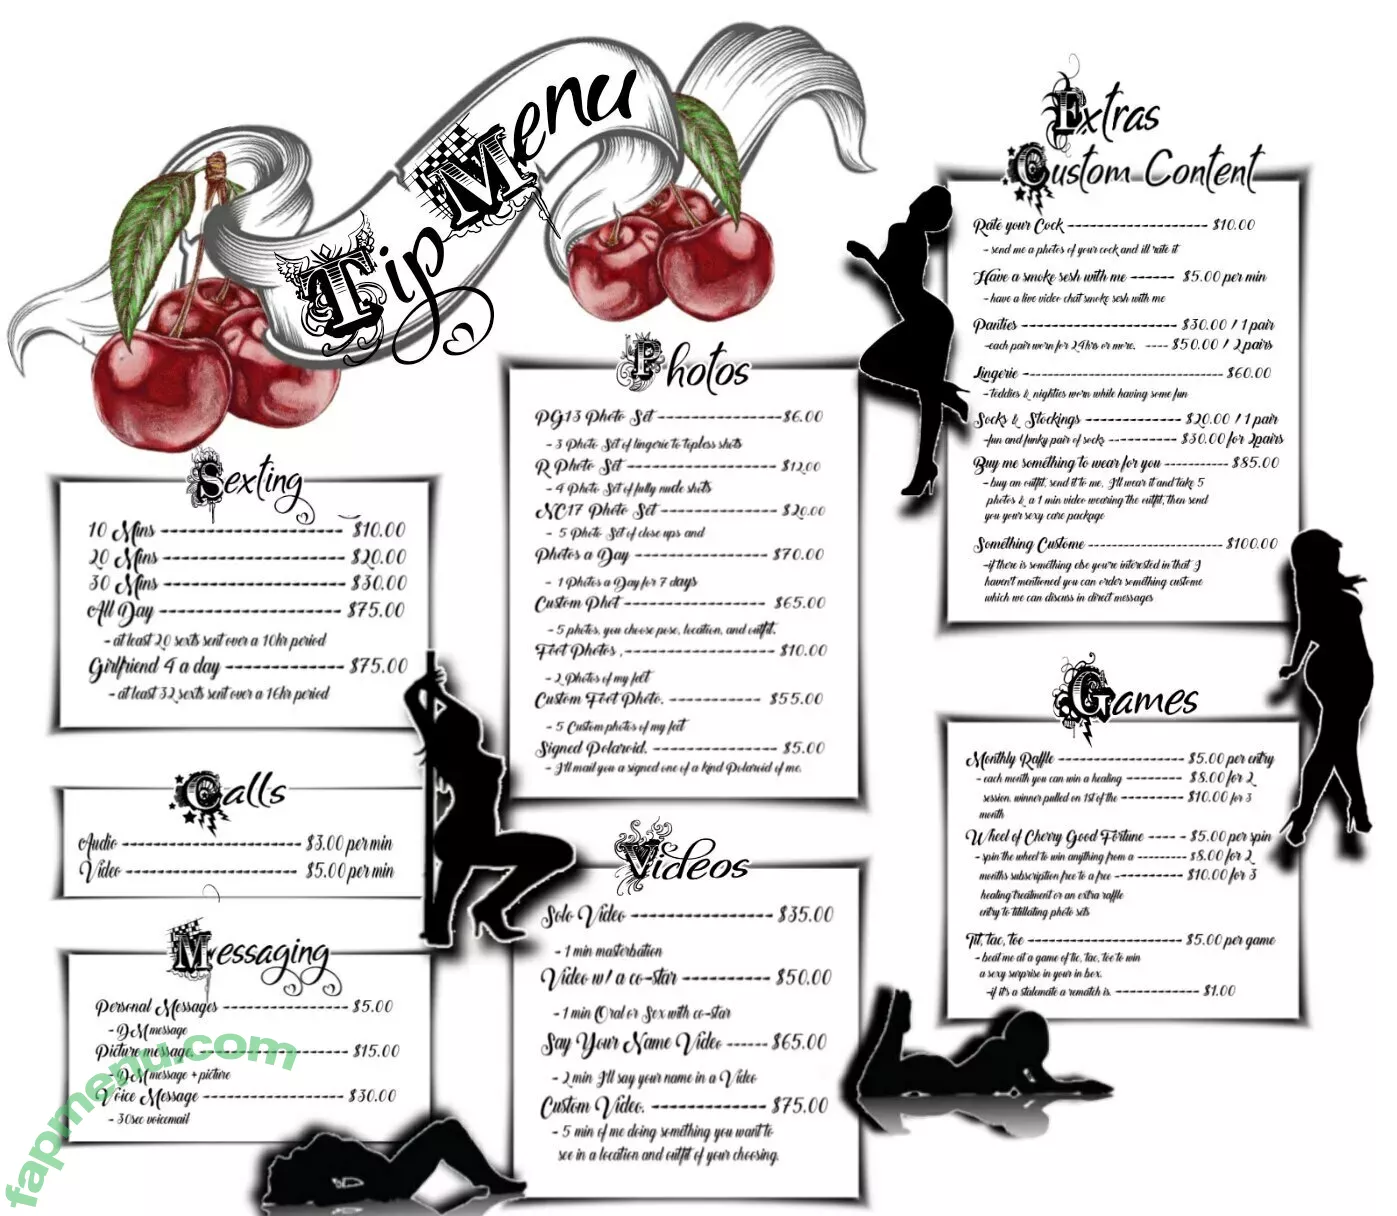 Tip Menu
Sexting
10 Mins ---------------------- $10.00
20 Mins ---------------------- $20.00
30 Mins ---------------------- $30.00
All Day ---------------------- $75.00
- at least 20 sexts sent over a 10hr period
Girlfriend 4 a day -------------- $75.00
- at least 32 sexts sent over a 16hr period
Calls
Audio ---------------------- $3.00 per min
Video ---------------------- $5.00 per min
Messaging
Personal Messages -------------- $5.00
- DM message
Picture message. ---------------- $15.00
- DM message + picture
Voice Message ---------------- $30.00
- 30sec voicemail
Photos
PG13 Photo Set ----------------$6.00
- 3 Photo Set of lingerie to topless shots
R Photo Set ------------------ $12.00
- 4 Photo Set of fully nude shots
NC17 Photo Set -------------- $20.00
- 5 Photo Set of close ups and
Photos a Day ---------------- $70.00
- 1 Photos a Day for 7 days
Custom Phot ---------------- $65.00
- 5 photos, you choose pose, location, and outfit.
Foot Photos ,------------------ $10.00
- 2 Photos of my feet
Custom Foot Photo. ------------ $55.00
- 5 Custom photos of my feet
Signed Polaroid. ---------------- $5.00
- I'll mail you a signed one of a kind Polaroid of me.
Videos
Solo Video ------------------ $35.00
- 1 min masterbation
Video w/ a co-star ------------ $50.00
- 1 min Oral or Sex with co-star
Say Your Name Video ------ $65.00
- 2 min I'll say your name in a Video
Custom Video. -------------- $75.00
- 5 min of me doing something you want to
see in a location and outfit of your choosing.
Extras
Custom Content
Rate your Cock -------------------- $10.00
- send me a photos of your cock and ill rate it
Have a smoke sesh with me ------ $5.00 per min
- have a live video chat smoke sesh with me
Panties ---------------------- $30.00 / 1 pair
-each pair worn for 24hrs or more. ---- $50.00 / 2 pairs
Lingerie ---------------------------- $60.00
- teddies & nighties worn while having some fun
Socks & Stockings -------------- $20.00 / 1 pair
-fun and funky pair of socks ---------- $30.00 for 2pairs
Buy me something to wear for you ---------- $85.00
- buy an outfit, send it to me, I'll wear it and take 5
photos & a 1 min video wearing the outfit, then send
you your sexy care package
Something Custome -------------------- $100.00
-if there is something else you're interested in that I
haven't mentioned you can order something custome
which we can discuss in direct messages
Games
Monthly Raffle ------------------ $5.00 per entry
- each month you can win a healing ---------- $8.00 for 2
session. winner pulled on 1st of the ---------- $10.00 for 3
month
Wheel of Cherry Good Fortune ----- $5.00 per spin
- spin the wheel to win anything from a --------- $8.00 for 2
months subscription free to a free ------------ $10.00 for 3
healing treatment or an extra raffle
entry to titillating photo sets
Tit, tac, toe -------------------- $5.00 per game
- beat me at a game of tic, tac, toe to win
a sexy surprise in your in box.
-if it's a stalemate a rematch is. -------------- $1.00
fapmenu.com